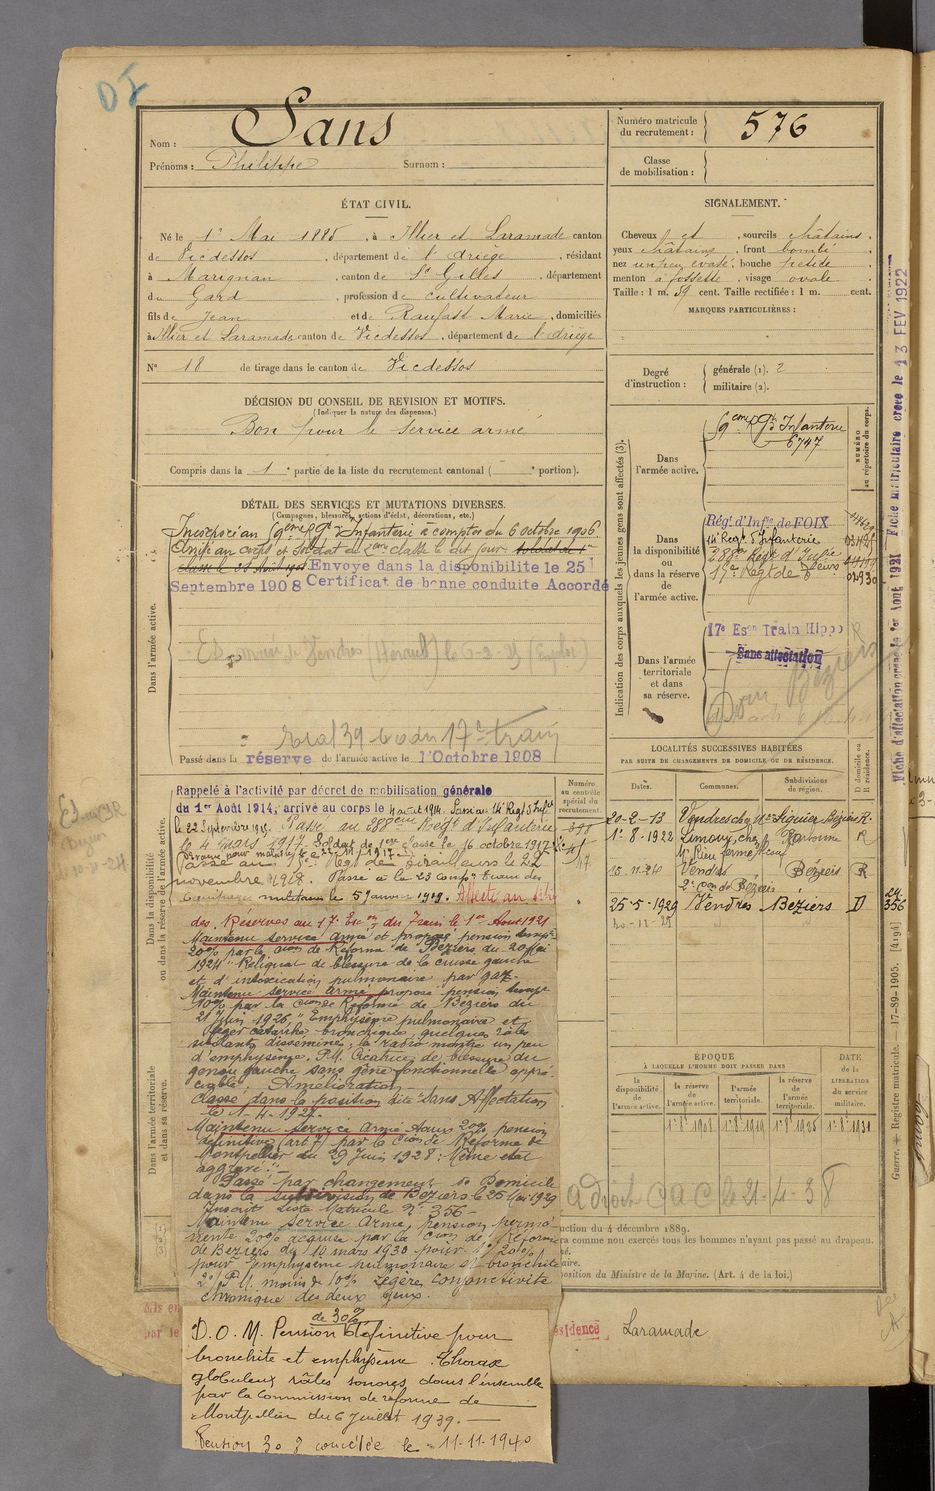 DJ
Nom : Sans
Prénoms : Philippe Surnom :
Numéro matricule du recrutement : 576
Classe de mobilisation :
ÉTAT CIVIL.
Né le 1er Mai 1885, à Illier et Laramade canton
de Vicdessos, département de l'Ariège, résidant
à Marignan, canton de St Gilles, département
du Gard, profession de cultivateur
fils de Jean et de Raufast Marie, domiciliés
à Illier et Laramade canton de Vicdessos, département de l'Ariège
No 18 de tirage dans le canton de Vicdessos
SIGNALEMENT.
Cheveux et, sourcils châtains,
yeux châtains, front bombé
nez un peu évasé, bouche petite
menton à fossette, visage ovale
Taille : 1 m. 59 cent. Taille rectifiée : 1 m. cent.
MARQUES PARTICULIÈRES :
Degré d'instruction : générale (1). 2
militaire (2).
DÉCISION DU CONSEIL DE REVISION ET MOTIFS.
(Indiquer la nature des dispenses.)
Bon pour le service armé
Compris dans la 1 e partie de la liste du recrutement cantonal ( e portion).
DÉTAIL DES SERVICES ET MUTATIONS DIVERSES.
(Campagnes, blessures, actions d'éclat, décorations, etc.)
Dans l'armée active.
Incorporé au 59eme Rgt d'Infanterie à compter du 6 octobre 1906
Arrivé au corps et soldat de 2eme classe le dit jour.
Envoyé dans la disponibilité le 25
Septembre 1908 Certificat de bonne conduite Accordé
Vendres (Hérault) le 6-2-25
17e train
Passé dans la réserve de l'armée active le 1 Octobre 1908
Indication des corps auxquels les jeunes gens sont affectés (3).
Dans l'armée active.
59eme Rgt d'Infanterie
6747
NUMÉRO au répertoire du corps.
Dans la disponibilité ou dans la réserve de l'armée active.
Régt d'Infie de FOIX
14e Regt d'Infanterie
388e Regt d'Infie
Dans l'armée territoriale et dans sa réserve.
17e Eson Train Hippo
Sans affectation
Béziers
LOCALITÉS SUCCESSIVES HABITÉES
PAR SUITE DE CHANGEMENTS DE DOMICILE OU DE RÉSIDENCE.
Dates. Communes. Subdivisions de région. D domicile ou R résidence.
20-2-13 Vendres chez Mr Siguier Béziers R.
1-8-1922 Limoux, chez Narbonne R
15-11-24 Vendres Béziers R
2e con de Béziers
25-5-1929 Vendres Béziers D
356
Dans la disponibilité ou dans la réserve de l'armée active.
Numéro au contrôle spécial du recrutement.
Rappelé à l'activité par décret de mobilisation générale
du 1er Août 1914, arrivé au corps le 4 août 1914. Passé au 14e Regt d'Infie
le 22 Septembre 1915. Passé au 388eme Regt d'Infanterie
le 4 mars 1917. Soldat de 1ere classe le 16 octobre 1917
Passé au Regt de tirailleurs le 28
novembre 1918. Passé à la 23 Compie
Equipages militaires le 5 Janvier 1919. Affecté au titre
des Réserves au 17e Eson du Train le 1er Août 1921
Maintenu service armé et proposé pension temp.
20% par la Cion de Réforme de Béziers du 20 Mai
1924 "Reliquat de blessure de la cuisse gauche
et d'intoxication pulmonaire par gaz
Maintenu service armé proposé pension temp.
10% par la Cion de Réforme de Béziers du
21 Juin 1926, "Emphysème pulmonaire et
léger catarrhe bronchique, quelques râles
sibilants disséminés, la radio montre un peu
d'emphysème. P.M. Cicatrice de blessure du
genou gauche, sans gêne fonctionnelle appré-
ciable. Amélioration
Classé dans la position dite Sans Affectation
le 1-4-1927.
Maintenu service armé taux 20% pension
définitive (art 7) par la Cion de Réforme de
Montpellier du 29 Juin 1928 : Même état
aggravé."
Passé par changement de Domicile
dans la subdivision de Béziers le 25 Mai 1929
Inscrit Liste Matricule No 356
Maintenu service armé, pension perma-
nente 20% acquise par la Cion de Réforme
de Béziers du 10 mars 1930 pour 1o 20%
pour emphysème pulmonaire et bronchite
2o P.M. moins de 10% Légère conjonctivite
chronique des deux yeux.
Dans l'armée territoriale et dans sa réserve.
de 30%
D.O.M. Pension définitive pour
bronchite et emphysème. Thorax
globuleux râles sonores dans l'ensemble
par la Commission de réforme de
Montpellier du 6 Juillet 1939.
Pension 30 % concédée le 11-11-1940
ÉPOQUE
À LAQUELLE L'HOMME DOIT PASSER DANS
la disponibilité de l'armée active. la réserve de l'armée active. l'armée territoriale. la réserve de l'armée territoriale.
DATE de la LIBÉRATION du service militaire.
1er 8e 1908 1er 8e 1919 1er 8e 1925 1er 8e 1931
a droit CAC le 21-4-38
uction du 4 décembre 1889.
ra comme non exercés tous les hommes n'ayant pas passé au drapeau.
position du Ministre de la Marine. (Art. 4 de la loi.)
Mis en
par le
ésidence Laramade
Guerre. Registre matricule. — 17-89-1905. [4194]
Fiche matriculaire créée le 13 FEV 1922